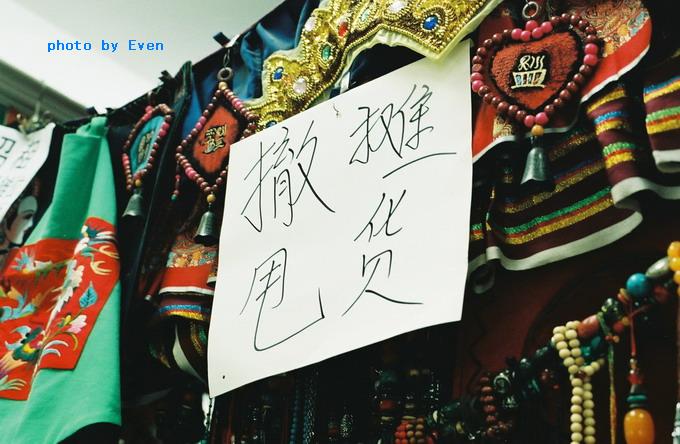 photo by Even
撤摊
甩货